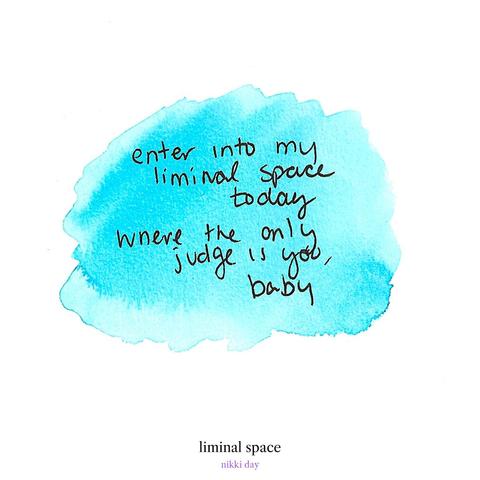 enter into my
liminal space
today
where the only
judge is you,
baby
liminal space
nikki day